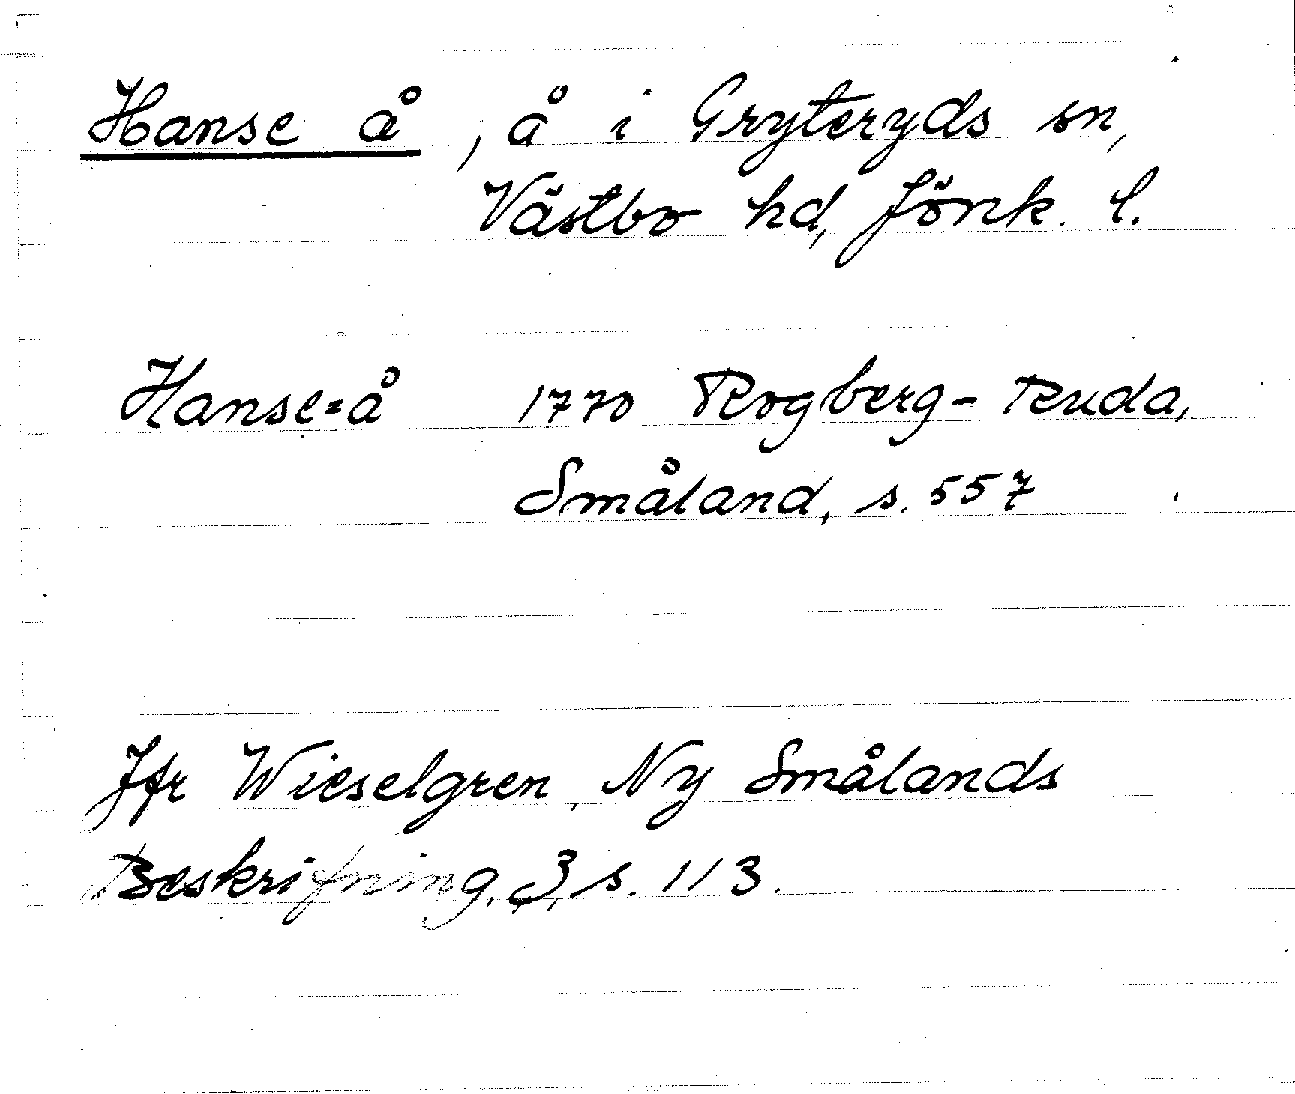 Hanse å, å i Gryteryds sn,
Västbo hd, Jönk. l.
Hanse=å 1770 Rogberg-Ruda,
Småland, s. 557
Jfr Wieselgren, Ny Smålands
Beskrifning, 3, s. 113.